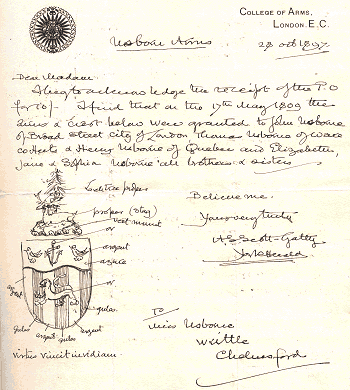 COLLEGE OF ARMS,
LONDON. E.C.
Usborne Arms
28 Oct 1897
Dear Madam
I beg to acknowledge the receipt of the P.O
for 10/- I find that on the 17th May 1809 the
arms & Crest below were granted to John Usborne
of Broad Street City of London Thomas Usborne of
Herts & Henry Usborne of Quebec and Elizabeth,
Jane & Sophia Usborne all brothers & sisters
proper
Believe me
proper (Stag)
vert mount
or
Yours very truly
argent
azure
A S Scott-Gatty
York Herald
or
argent
gules
gules
argent
gules
argent
To
Miss Usborne
Writtle
Chelmsford
virtus vincit invidiam